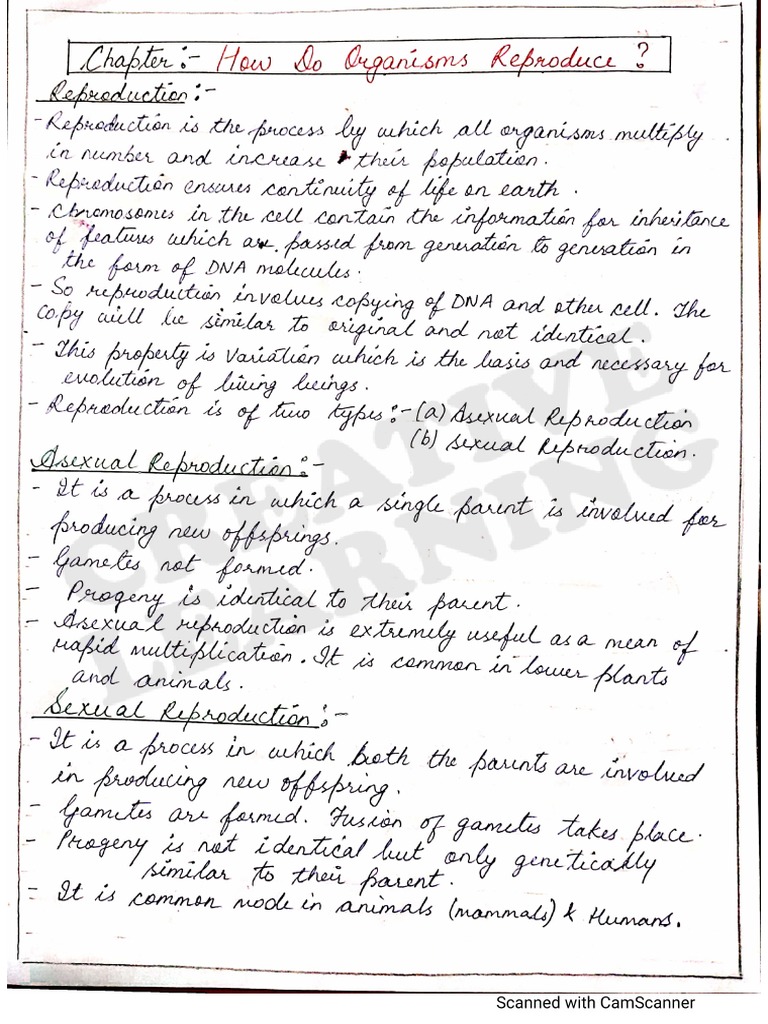 Chapter:- How Do Organisms Reproduce ?
Reproduction:-
- Reproduction is the process by which all organisms multiply
in number and increase their population.
- Reproduction ensures continuity of life on earth.
- Chromosomes in the cell contain the information for inheritance
of features which are passed from generation to generation in
the form of DNA molecules.
- So reproduction involves copying of DNA and other cell. The
copy will be similar to original and not identical.
- This property is variation which is the basis and necessary for
evolution of living beings.
- Reproduction is of two types:- (a) Asexual Reproduction
(b) Sexual Reproduction.
Asexual Reproduction:-
- It is a process in which a single parent is involved for
producing new offsprings.
- Gametes not formed.
- Progeny is identical to their parent.
- Asexual reproduction is extremely useful as a mean of
rapid multiplication. It is common in lower plants
and animals.
Sexual Reproduction:-
- It is a process in which both the parents are involved
in producing new offspring.
- Gametes are formed. Fusion of gametes takes place.
- Progeny is not identical but only genetically
similar to their parent.
- It is common mode in animals (mammals) & Humans.
CREATIVE
LEARNING
Scanned with CamScanner